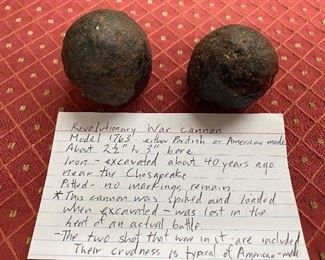 Revolutionary War Cannon
Model 1763 either British or American made
About 2½" to 3" bore
Iron - excavated about 40 years ago
near the Chesapeake
Pitted - no markings remain
* This cannon was spiked and loaded
when excavated - was lost in the
heat of an actual battle
- The two shot that were in it are included
Their crudness is typical of American-made